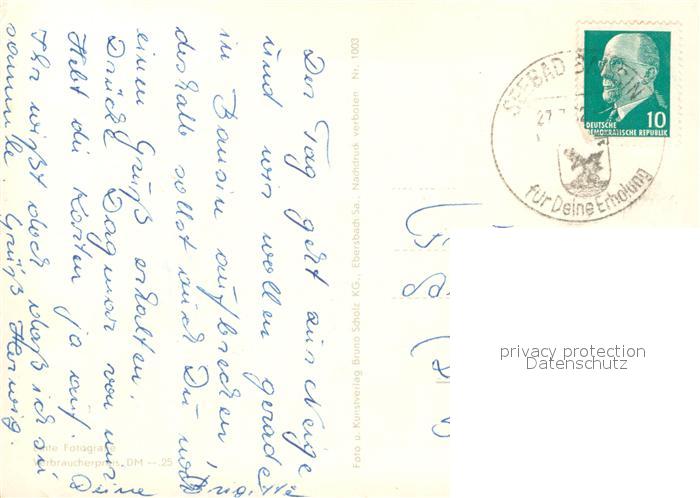 Der Tag geht zur Neige
und wir wollen gerade
in Bansin aufbrechen,
deshalb sollst auch Du noch
einen Gruß erhalten.
Drücke Dagmar von mir.
Hebt die Karten ja auf.
Ihr wißt doch daß ich sie
sammle. Grüße Herwig.
Deine Brigitte
Echte Fotografie
Verbraucherpreis DM --.25
Foto u. Kunstverlag Bruno Scholz KG., Ebersbach Sa. Nachdruck verboten Nr. 1003
SEEBAD BANSIN
27.7.
für Deine Erholung
10
DEUTSCHE
DEMOKRATISCHE REPUBLIK
privacy protection
Datenschutz